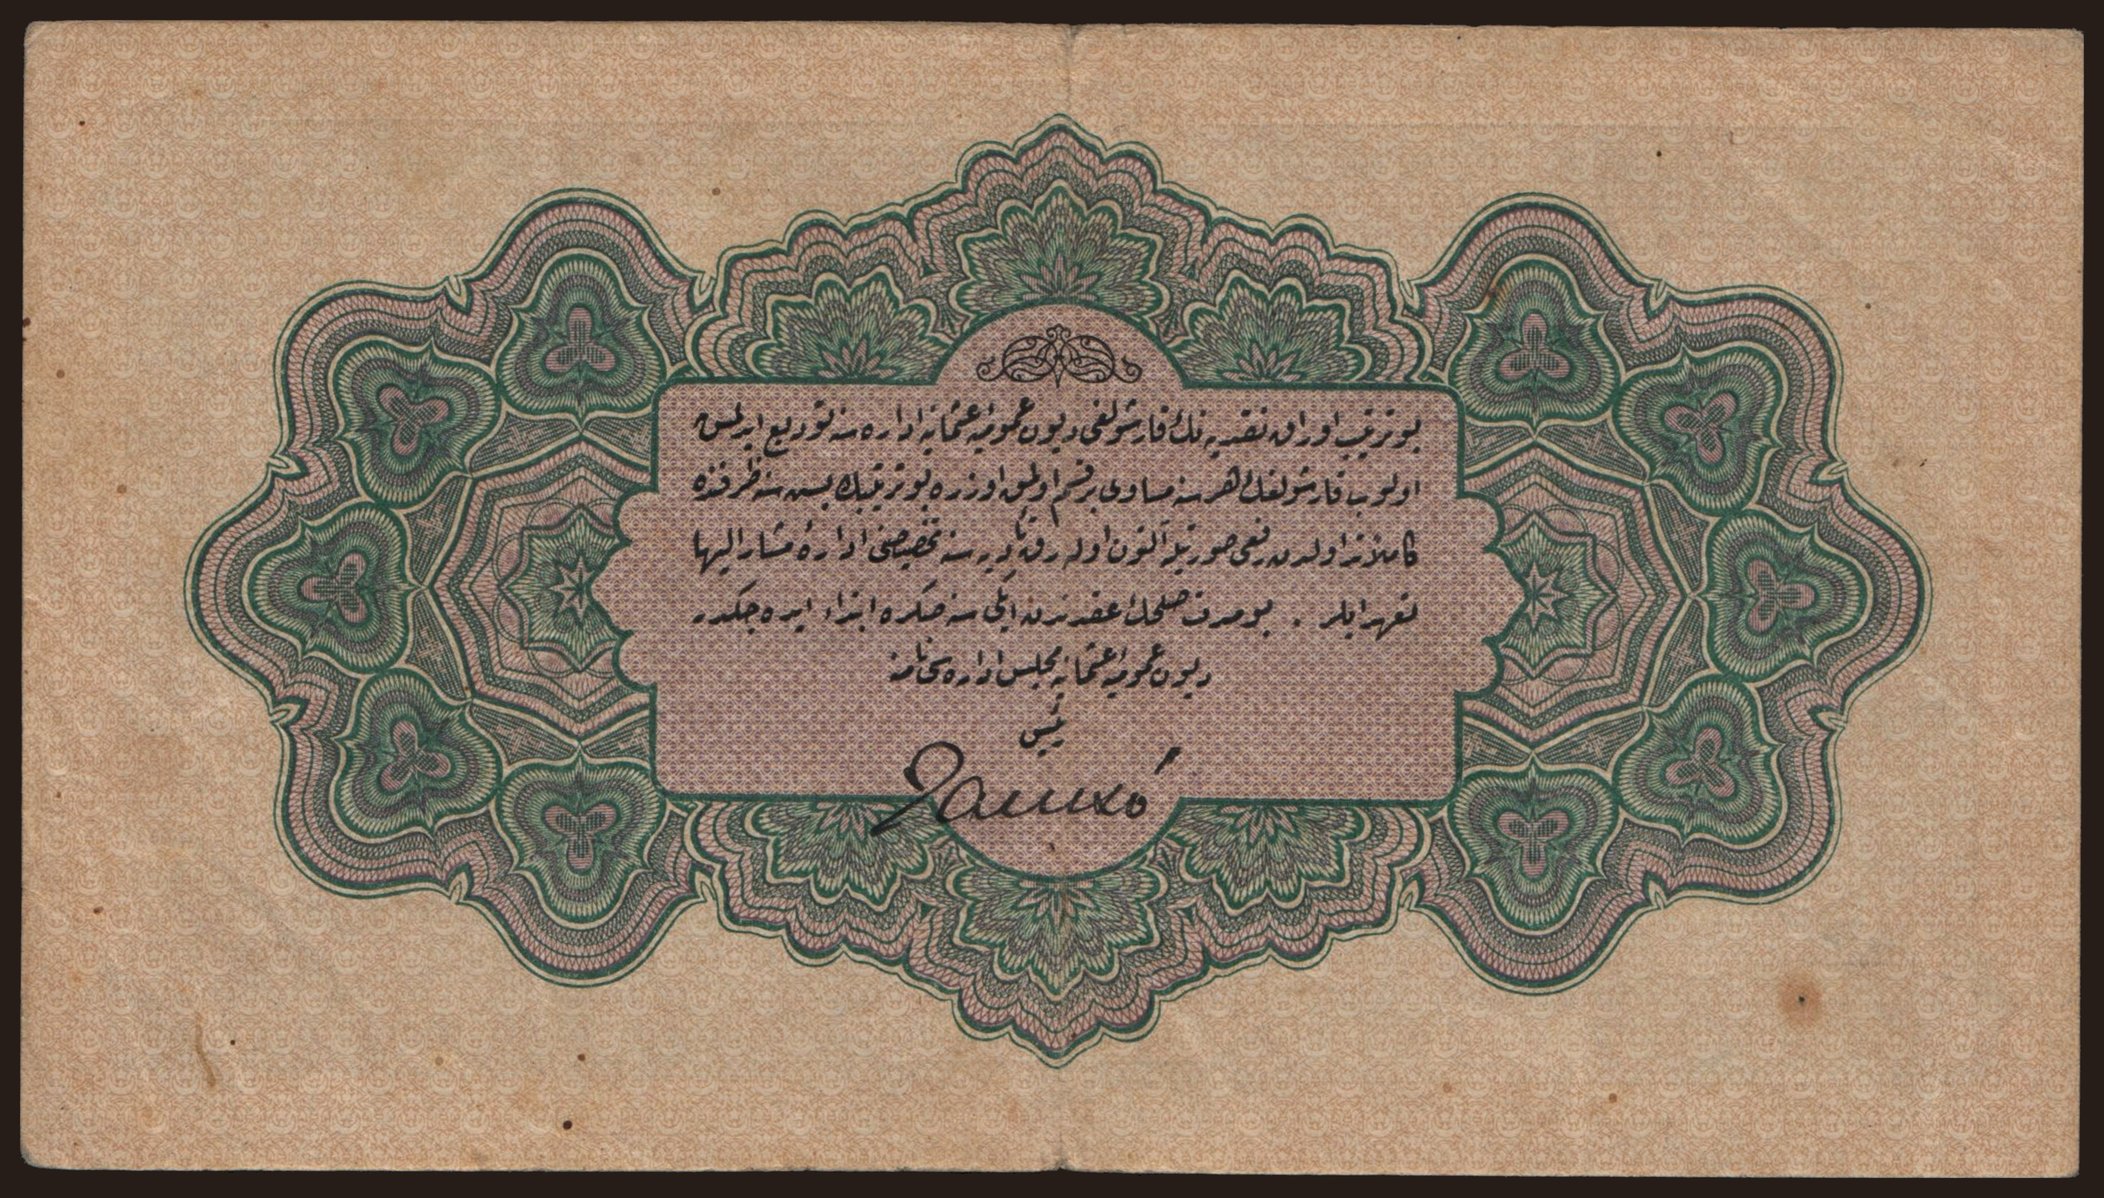 بو ترتیب اوراق نقدیه‌نك قارشولغی دیون عمومیهٔ عثمانیه اداره‌سنه تودیع ایدلمش
اولوب قارشولغك هر سنه مساوی بر قسم اولمق اوزره بو ترتیبك بش سنه ظرفنده
كاملاً تداولدن رفعی صورتیله آلتون اوله‌رق تأدیه‌سنه تخصیصنی ادارهٔ مشار الیها
تعهد ایلر . بو صرف صلحك عقدندن ایكی سنه صكره ابتداء ایده‌جكدر
دیون عمومیهٔ عثمانیه مجلس اداره‌سی نامنه
رئیسی